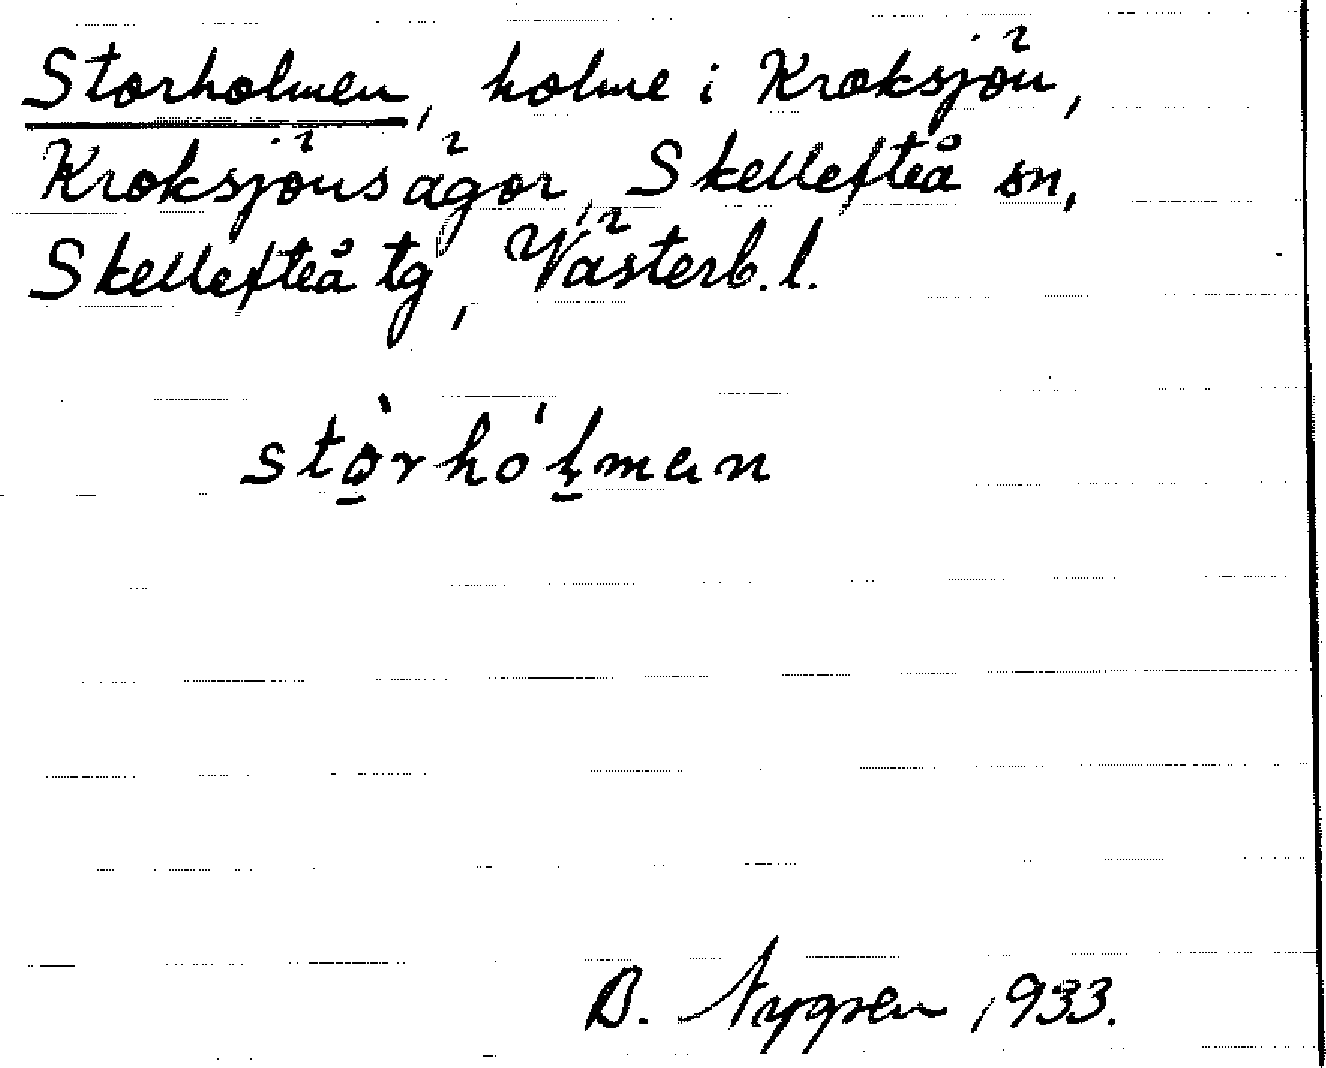 Storholmen, holme i Kroksjön,
Kroksjönsägor, Skellefteå sn,
Skellefteå tg, Västerb. l.
stò̱rhóḻman
B. Nygren 1933.